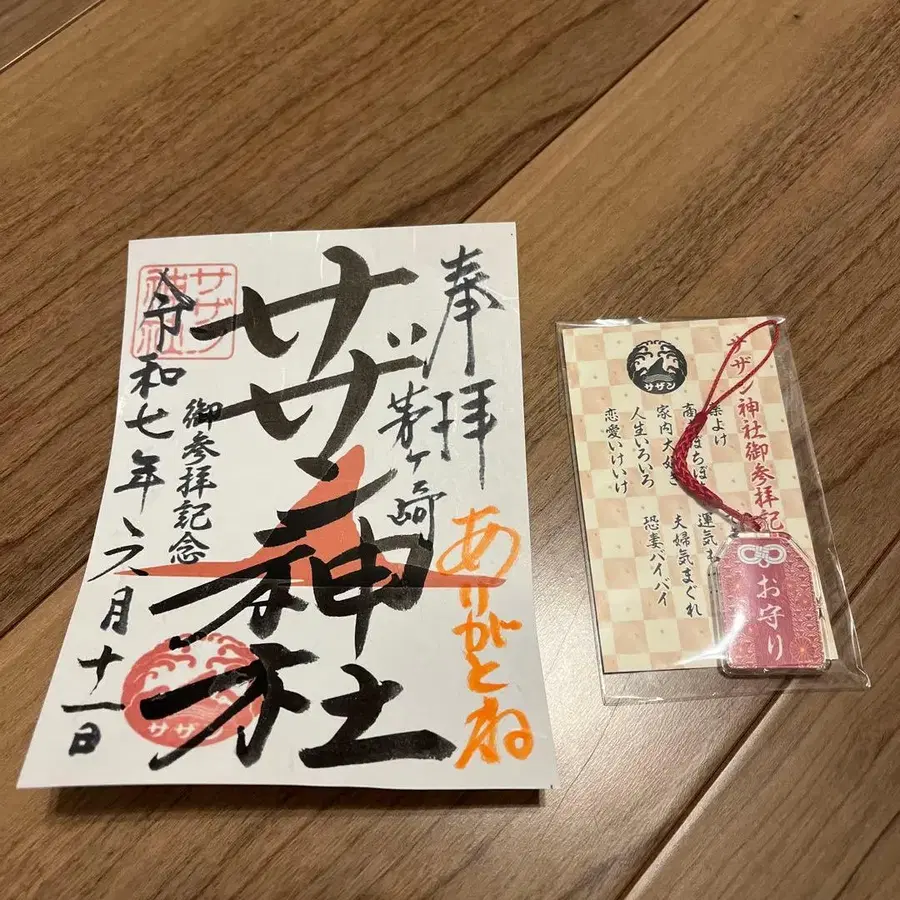 奉拝
茅ヶ崎
ありがとね
サザン神社
御参拝記念
令和七年六月十一日
サザン
神社
サザン
サザン神社御参拝記
サザン
よけ
家内大好き
人生いろいろ
恋愛いけいけ
運気
夫婦気まぐれ
恐妻バイバイ
お守り